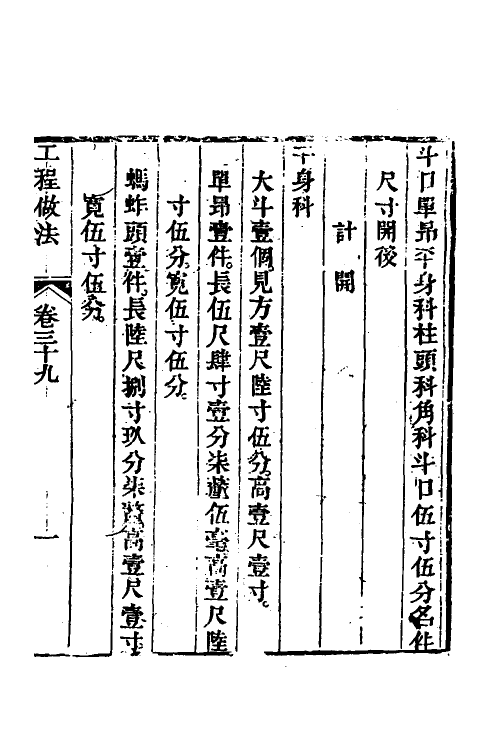 斗口單昂平身科柱頭科角科斗口伍寸伍分名件
尺寸開後
計開
平身科
大斗壹個見方壹尺陸寸伍分。高壹尺壹寸。
單昂壹件。長伍尺肆寸壹分柒釐伍毫。高壹尺陸
寸伍分。寬伍寸伍分。
螞蚱頭壹件。長陸尺捌寸玖分柒釐。高壹尺壹寸
寬伍寸伍分。
工程做法 卷三十九 一